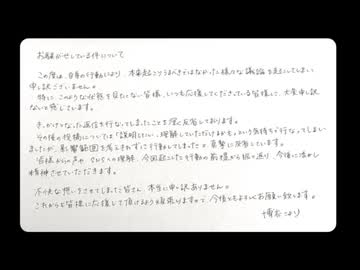 お騒がせしている件について
この度は、自身の行動により、本来起こりうるべきではなかった様々な議論を起こしてしまい
申し訳ございません。
特に、このような状態を見たくない皆様、いつも応援してくださっている皆様に、大変申し訳
ないと感じています。
きっかけとなった返信を行なってしまったことを深く反省しております。
その後の投稿については「説明したい、理解していただけるかも」という気持ちで行なってしまい
ましたが、影響範囲を考えきれずに行動してしまったと、真摯に反省しています。
皆様からの声や、SNSへの理解、今回起こした行動の前提から振り返り、今後に活かし
精神させていただきます。
不快な想いをさせてしまった皆さん、本当に申し訳ありません。
これからも皆様に応援して頂けるよう頑張りますので、今後ともよろしくお願い致します。
博衣こより